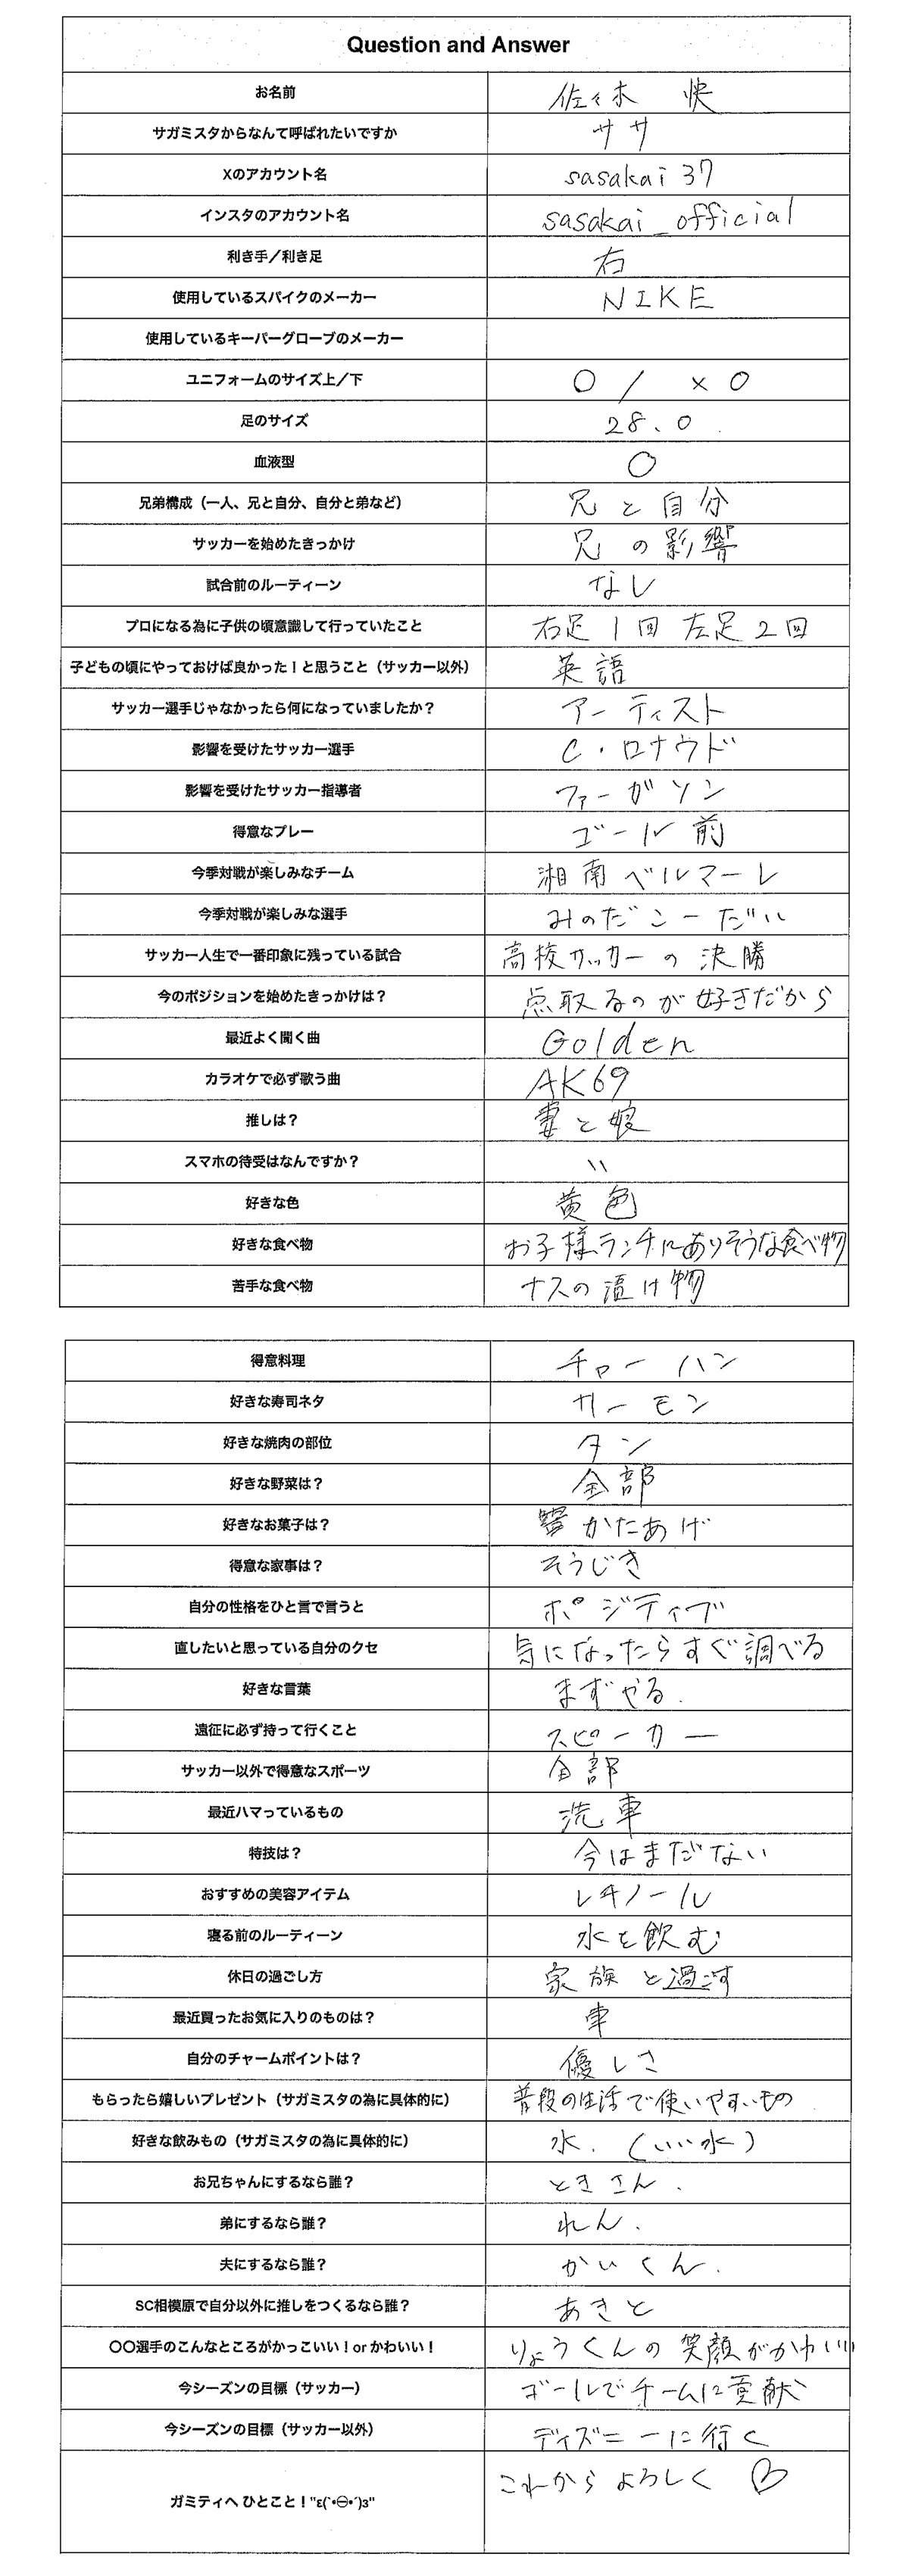 Question and Answer
お名前 佐々木 快
サガミスタからなんて呼ばれたいですか ササ
Xのアカウント名 sasakai37
インスタのアカウント名 sasakai_official
利き手／利き足 右
使用しているスパイクのメーカー NIKE
使用しているキーパーグローブのメーカー
ユニフォームのサイズ上／下 O / XO
足のサイズ 28.0
血液型 O
兄弟構成（一人、兄と自分、自分と弟など） 兄と自分
サッカーを始めたきっかけ 兄の影響
試合前のルーティーン なし
プロになる為に子供の頃意識して行っていたこと 右足1回 左足2回
子どもの頃にやっておけば良かった！と思うこと（サッカー以外） 英語
サッカー選手じゃなかったら何になっていましたか？ アーティスト
影響を受けたサッカー選手 C・ロナウド
影響を受けたサッカー指導者 ファーガソン
得意なプレー ゴール前
今季対戦が楽しみなチーム 湘南ベルマーレ
今季対戦が楽しみな選手 みのだこーだい
サッカー人生で一番印象に残っている試合 高校サッカーの決勝
今のポジションを始めたきっかけは？ 点取るのが好きだから
最近よく聞く曲 Golden
カラオケで必ず歌う曲 AK69
推しは？ 妻と娘
スマホの待受はなんですか？ 〃
好きな色 黄色
好きな食べ物 お子様ランチにありそうな食べ物
苦手な食べ物 ナスの漬け物
得意料理 チャーハン
好きな寿司ネタ サーモン
好きな焼肉の部位 タン
好きな野菜は？ 全部
好きなお菓子は？ かたあげ
得意な家事は？ そうじき
自分の性格をひと言で言うと ポジティブ
直したいと思っている自分のクセ 気になったらすぐ調べる
好きな言葉 まずやる.
遠征に必ず持って行くこと スピーカー
サッカー以外で得意なスポーツ 全部
最近ハマっているもの 洗車
特技は？ 今はまだない
おすすめの美容アイテム レチノール
寝る前のルーティーン 水を飲む
休日の過ごし方 家族と過ごす
最近買ったお気に入りのものは？ 車
自分のチャームポイントは？ 優しさ
もらったら嬉しいプレゼント（サガミスタの為に具体的に） 普段の生活で使いやすいもの
好きな飲みもの（サガミスタの為に具体的に） 水.（いい水）
お兄ちゃんにするなら誰？ ときさん.
弟にするなら誰？ れん.
夫にするなら誰？ かいくん.
SC相模原で自分以外に推しをつくるなら誰？ あきと
〇〇選手のこんなところがかっこいい！or かわいい！ りょうくんの笑顔がかわいい
今シーズンの目標（サッカー） ゴールでチームに貢献
今シーズンの目標（サッカー以外） ディズニーに行く
ガミティへ ひとこと！"ε(´•㊀•`)з" これからよろしく♡